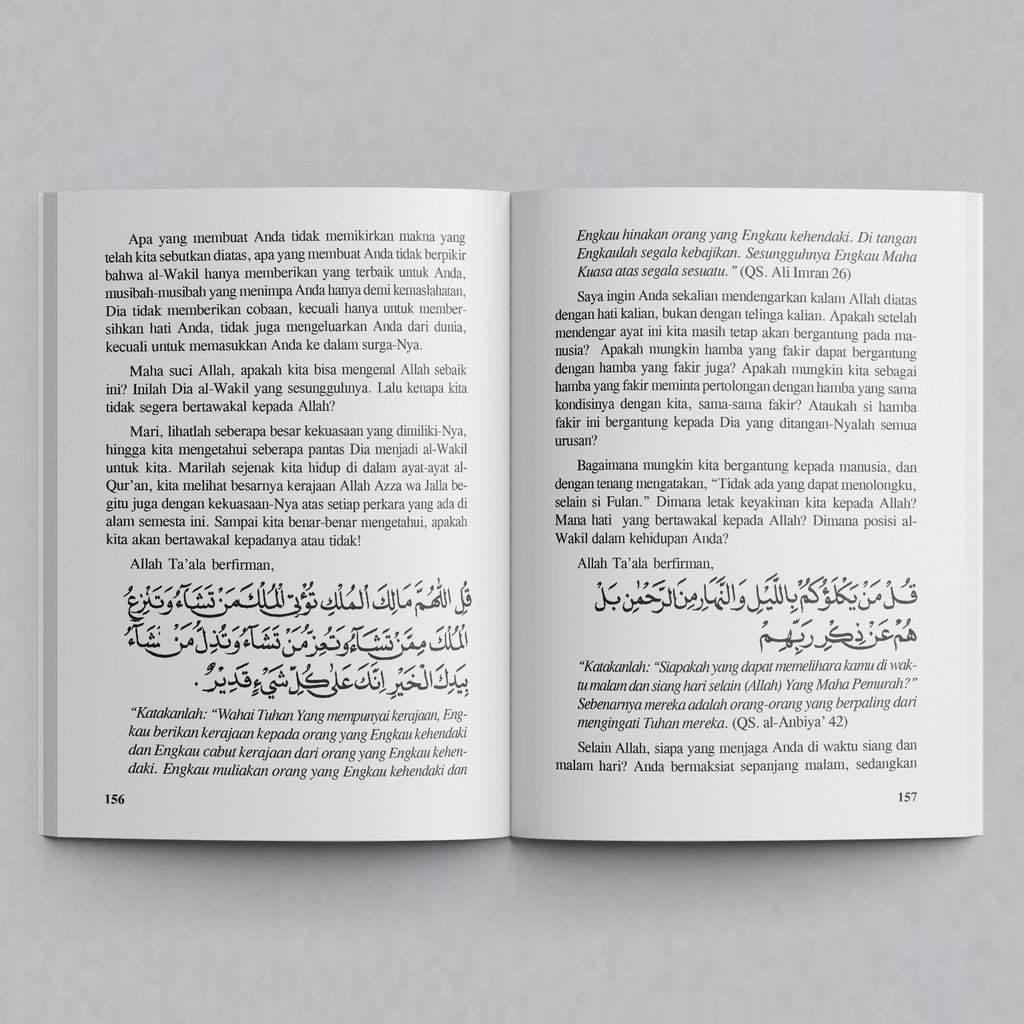 Apa yang membuat Anda tidak memikirkan makna yang
telah kita sebutkan diatas, apa yang membuat Anda tidak berpikir
bahwa al-Wakil hanya memberikan yang terbaik untuk Anda,
musibah-musibah yang menimpa Anda hanya demi kemaslahatan,
Dia tidak memberikan cobaan, kecuali hanya untuk member-
sihkan hati Anda, tidak juga mengeluarkan Anda dari dunia,
kecuali untuk memasukkan Anda ke dalam surga-Nya.
Maha suci Allah, apakah kita bisa mengenal Allah sebaik
ini? Inilah Dia al-Wakil yang sesungguhnya. Lalu kenapa kita
tidak segera bertawakal kepada Allah?
Mari, lihatlah seberapa besar kekuasaan yang dimiliki-Nya,
hingga kita mengetahui seberapa pantas Dia menjadi al-Wakil
untuk kita. Marilah sejenak kita hidup di dalam ayat-ayat al-
Qur'an, kita melihat besarnya kerajaan Allah Azza wa Jalla be-
gitu juga dengan kekuasaan-Nya atas setiap perkara yang ada di
alam semesta ini. Sampai kita benar-benar mengetahui, apakah
kita akan bertawakal kepadanya atau tidak!
Allah Ta'ala berfirman,
قُلِ اللَّهُمَّ مَالِكَ الْمُلْكِ تُؤْتِي الْمُلْكَ مَنْ تَشَآءُ وَتَنْزِعُ
الْمُلْكَ مِمَّنْ تَشَآءُ وَتُعِزُّ مَنْ تَشَآءُ وَتُذِلُّ مَنْ تَشَآءُ
بِيَدِكَ الْخَيْرُ إِنَّكَ عَلَىٰ كُلِّ شَيْءٍ قَدِيْرٌ .
"Katakanlah: "Wahai Tuhan Yang mempunyai kerajaan, Eng-
kau berikan kerajaan kepada orang yang Engkau kehendaki
dan Engkau cabut kerajaan dari orang yang Engkau kehen-
daki. Engkau muliakan orang yang Engkau kehendaki dan
156
Engkau hinakan orang yang Engkau kehendaki. Di tangan
Engkaulah segala kebajikan. Sesungguhnya Engkau Maha
Kuasa atas segala sesuatu." (QS. Ali Imran 26)
Saya ingin Anda sekalian mendengarkan kalam Allah diatas
dengan hati kalian, bukan dengan telinga kalian. Apakah setelah
mendengar ayat ini kita masih tetap akan bergantung pada ma-
nusia? Apakah mungkin hamba yang fakir dapat bergantung
dengan hamba yang fakir juga? Apakah mungkin kita sebagai
hamba yang fakir meminta pertolongan dengan hamba yang sama
kondisinya dengan kita, sama-sama fakir? Ataukah si hamba
fakir ini bergantung kepada Dia yang ditangan-Nyalah semua
urusan?
Bagaimana mungkin kita bergantung kepada manusia, dan
dengan tenang mengatakan, "Tidak ada yang dapat menolongku,
selain si Fulan." Dimana letak keyakinan kita kepada Allah?
Mana hati yang bertawakal kepada Allah? Dimana posisi al-
Wakil dalam kehidupan Anda?
Allah Ta'ala berfirman,
قُلْ مَنْ يَكْلَؤُكُمْ بِاللَّيْلِ وَالنَّهَارِ مِنَ الرَّحْمٰنِ بَلْ
هُمْ عَنْ ذِكْرِ رَبِّهِمْ
"Katakanlah: "Siapakah yang dapat memelihara kamu di wak-
tu malam dan siang hari selain (Allah) Yang Maha Pemurah?"
Sebenarnya mereka adalah orang-orang yang berpaling dari
mengingati Tuhan mereka. (QS. al-Anbiya' 42)
Selain Allah, siapa yang menjaga Anda di waktu siang dan
malam hari? Anda bermaksiat sepanjang malam, sedangkan
157